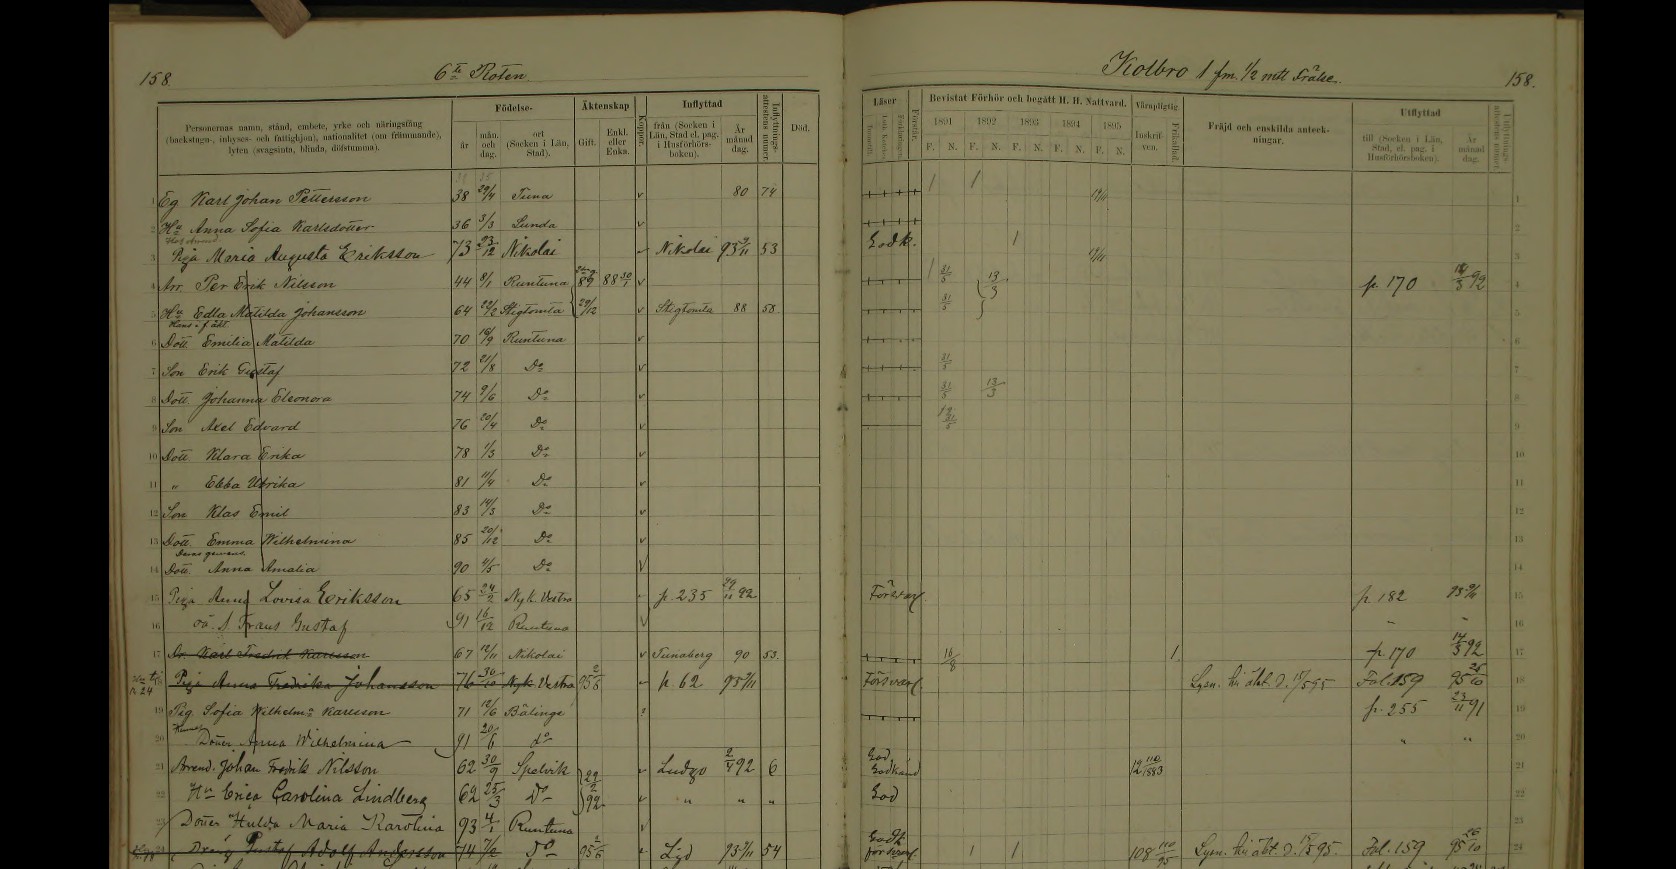 158.
6te Roten.
Kolbro 1 fm. 1/2 mtl Frälse.
158.
Personernas namn, stånd, embete, yrke och näringsfång
(backstugu-, inhyses- och fattighjon), nationalitet (om främmande),
lyten (svagsinta, blinda, döfstumma).
Födelse-
år
mån. och dag.
ort (Socken i Län, Stad).
Äktenskap
Gift.
Enkl. eller Enka.
Koppor.
Inflyttad
från (Socken i Län, Stad el. pag. i Husförhörs-boken).
År månad dag.
Inflyttnings-attestens nummer.
Död.
Läser
Förstår.
Bevistat Förhör och begått H. H. Nattvard.
1891 1892 1893 1894 1895
F. N. F. N. F. N. F. N. F. N.
Värnpligtig
Inskrif-ven.
Frikallad.
Fräjd och enskilda anteck-
ningar.
Utflyttad
till (Socken i Län, Stad, el. pag. i Husförhörsboken).
År månad dag.
1 Eg Karl Johan Pettersson 38 29/4 Tuna v 80 74 1
2 Hu Anna Sofia Karlsdotter 36 3/3 Lunda v 2
3 Piga Maria Augusta Eriksson 73 23/12 Nikolai Nikolai 93 9/11 53 Godk. 3
4 Arr. Per Erik Nilsson 44 8/1 Runtuna 89 88 30/1 v 31/5 13/3 p. 170 92 4
5 Hu Edla Matilda Johansson 64 22/2 Stigtomta 29/12 v Stigtomta 88 58. 31/5 5
Hans i f. äkt.
6 Dott. Emilia Matilda 70 16/9 Runtuna v 6
7 Son Erik Gustaf 72 21/8 Do v 31/5 7
8 Dott. Johanna Eleonora 74 9/6 Do v 31/5 13/3 8
9 Son Axel Edvard 76 20/4 Do v 9
10 Dott. Klara Erika 78 1/3 Do v 10
11 " Ebba Ulrika 81 11/4 Do v 11
12 Son Klas Emil 83 14/3 Do v 12
13 Dott. Emma Wilhelmina 85 20/12 Do v 13
Deras gemens.
14 Dott. Anna Amalia 90 4/5 Do v 14
15 Piga Anna Lovisa Eriksson 65 24/2 Nyk. Vestra p. 235 29/11 92 Försvarl. p. 182 15
16 oä. S. Frans Gustaf 91 16/12 Runtuna v " " 16
17 Dr. Karl Fredrik Karlsson 67 12/11 Nikolai v Tunaberg 90 53. 16/8 1. p. 170 14/3 92 17
n. 24 Piga Anna Fredrika Johansson 76 30/10 Nyk. Vestra 95 2/6 p. 62 Försvarl. Lysn. till äkt. d. 15/5 95 Fol. 159 95 26/10 18
19 Pig. Sofia Wilhelma Karlsson 71 12/6 Bälinge p. 255 23/11 91 19
20 Dotter Anna Wilhelmina 91 20/6 do " " 20
21 Arrend. Johan Fredrik Nilsson 62 30/9 Spelvik Ludgo 2/4 92 6 God Godkänd 12 110/1883 21
22 Hu Erica Carolina Lindberg 62 25/3 Do 22/2 92 v " " " God 22
23 Dotter Hulda Maria Karolina 93 4/1 Runtuna v 23
Dräng Gustaf Adolf Andersson 74 7/2 Do 95 2/6 Lid 54 Godk försvarl. 108 110/95 Lysn. till äkt. d. 15/5 95. Fol. 159 95 26/10 24